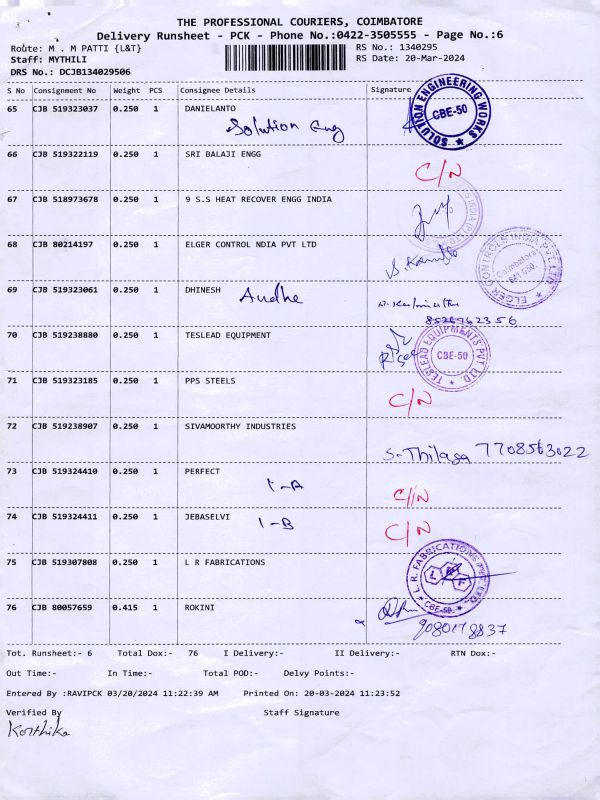 THE PROFESSIONAL COURIERS, COIMBATORE
Delivery Runsheet - PCK - Phone No.:0422-3505555 - Page No.:6
Route: M . M PATTI {L&T} RS No.: 1340295
Staff: MYTHILI RS Date: 20-Mar-2024
DRS No.: DCJB134029506
S No Consignment No Weight PCS Consignee Details Signature
65 CJB 519323037 0.250 1 DANIELANTO
Solution Eng
SOLUTION ENGINEERING WORKS CBE-50
66 CJB 519322119 0.250 1 SRI BALAJI ENGG
C/N
67 CJB 518973678 0.250 1 9 S.S HEAT RECOVER ENGG INDIA
68 CJB 80214197 0.250 1 ELGER CONTROL NDIA PVT LTD
ELGER CONTROLS INDIA PVT LTD Coimbatore 641 050.
69 CJB 519323061 0.250 1 DHINESH
70 CJB 519238880 0.250 1 TESLEAD EQUIPMENT
TESLEAD EQUIPMENTS PVT LTD CBE-50
71 CJB 519323185 0.250 1 PPS STEELS
C/N
72 CJB 519238907 0.250 1 SIVAMOORTHY INDUSTRIES
7708563022
73 CJB 519324410 0.250 1 PERFECT
1-A C/N
74 CJB 519324411 0.250 1 JEBASELVI
1-B C/N
75 CJB 519307808 0.250 1 L R FABRICATIONS
L.R. FABRICATIONS CBE-50
76 CJB 80057659 0.415 1 ROKINI
9080178837
Tot. Runsheet:- 6 Total Dox:- 76 I Delivery:- II Delivery:- RTN Dox:-
Out Time:- In Time:- Total POD:- Delvy Points:-
Entered By :RAVIPCK 03/20/2024 11:22:39 AM Printed On: 20-03-2024 11:23:52
Verified By Staff Signature
Korthika